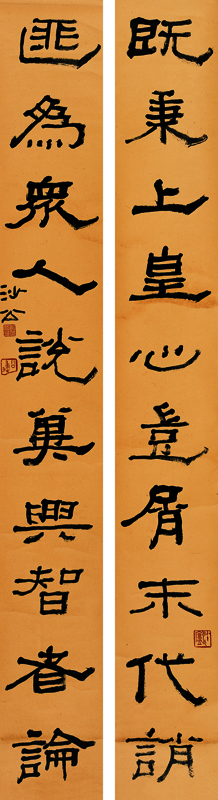 既秉上皇心豈屑末代誚
匪為眾人說冀與智者論
沙公